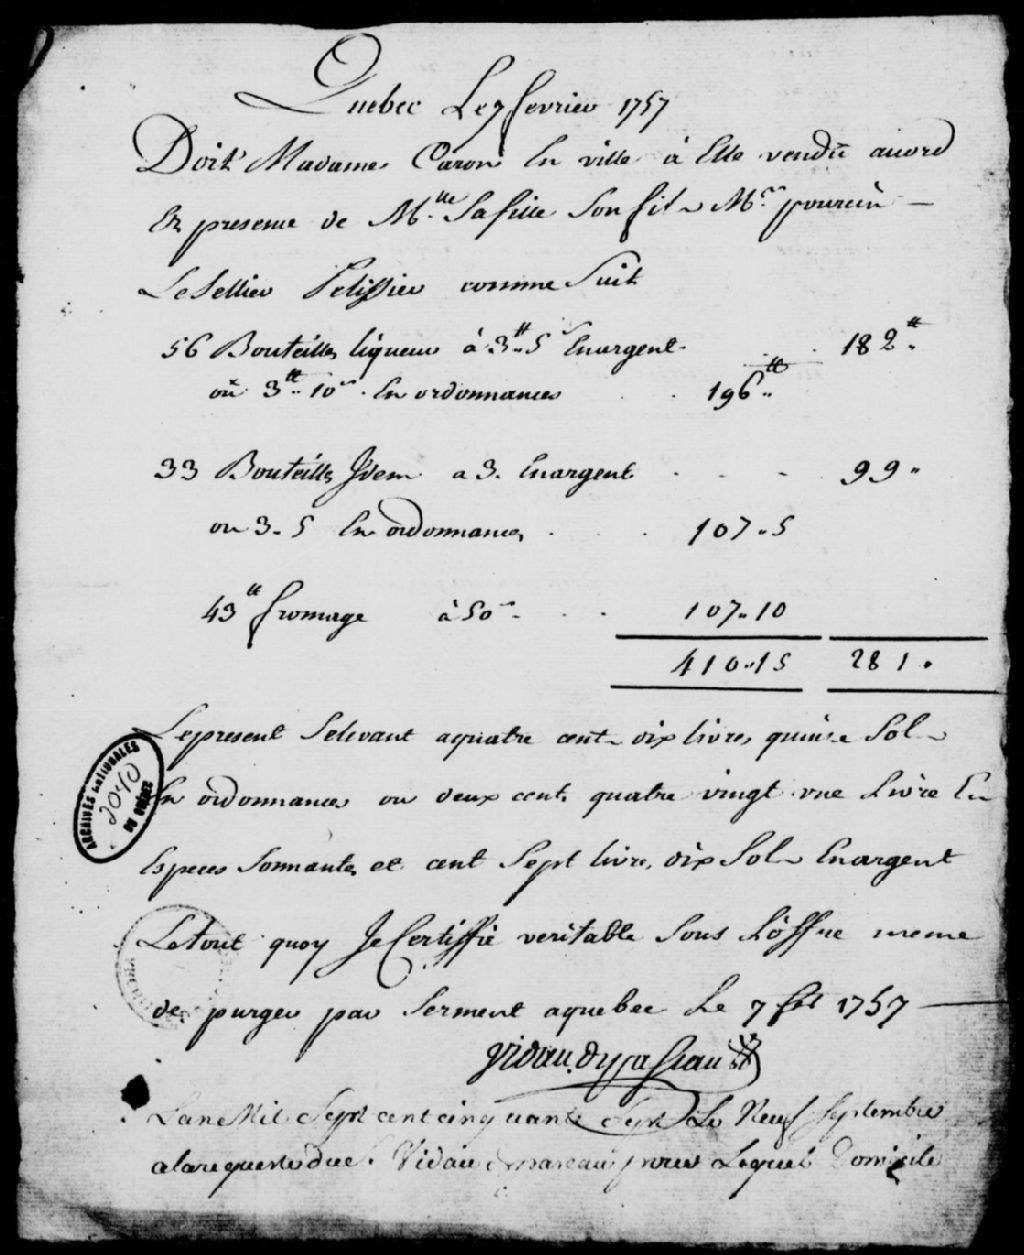 Quebec Le 7 fevrier 1757
Doit Madame Caron En ville à Elle vendû acord
En presence de Mlle Sa fille Son fils Mr
Le Sellier Pelissier comme Suit
56 Bouteilles liqueur à 3tt 5s Enargent 182tt
oû 3tt 10s En ordonnances 196tt
33 Bouteilles Idem a 3. Enargent 99
ou 3. 5 En ordonnances 107. 5
43tt fromage à 50s 107. 10
410. 15 281.
Le present Selevant aquatre cent dix livres quinse Sols
En ordonnances ou deux cents quatre vingt une Livre En
Especes Sonnantes et cent Sept livres dix Sols Enargent
ARCHIVES NATIONALES
2040
DU QUÉBEC
Le tout quoy Je Certiffie veritable Sous L'offre meme
de purger par Serment aquebec Le 7 1757
Lan Mil Sept cent cinquante Sept Le Neuf Septembre
alarequeste du S. Vidau Lequel Domicile